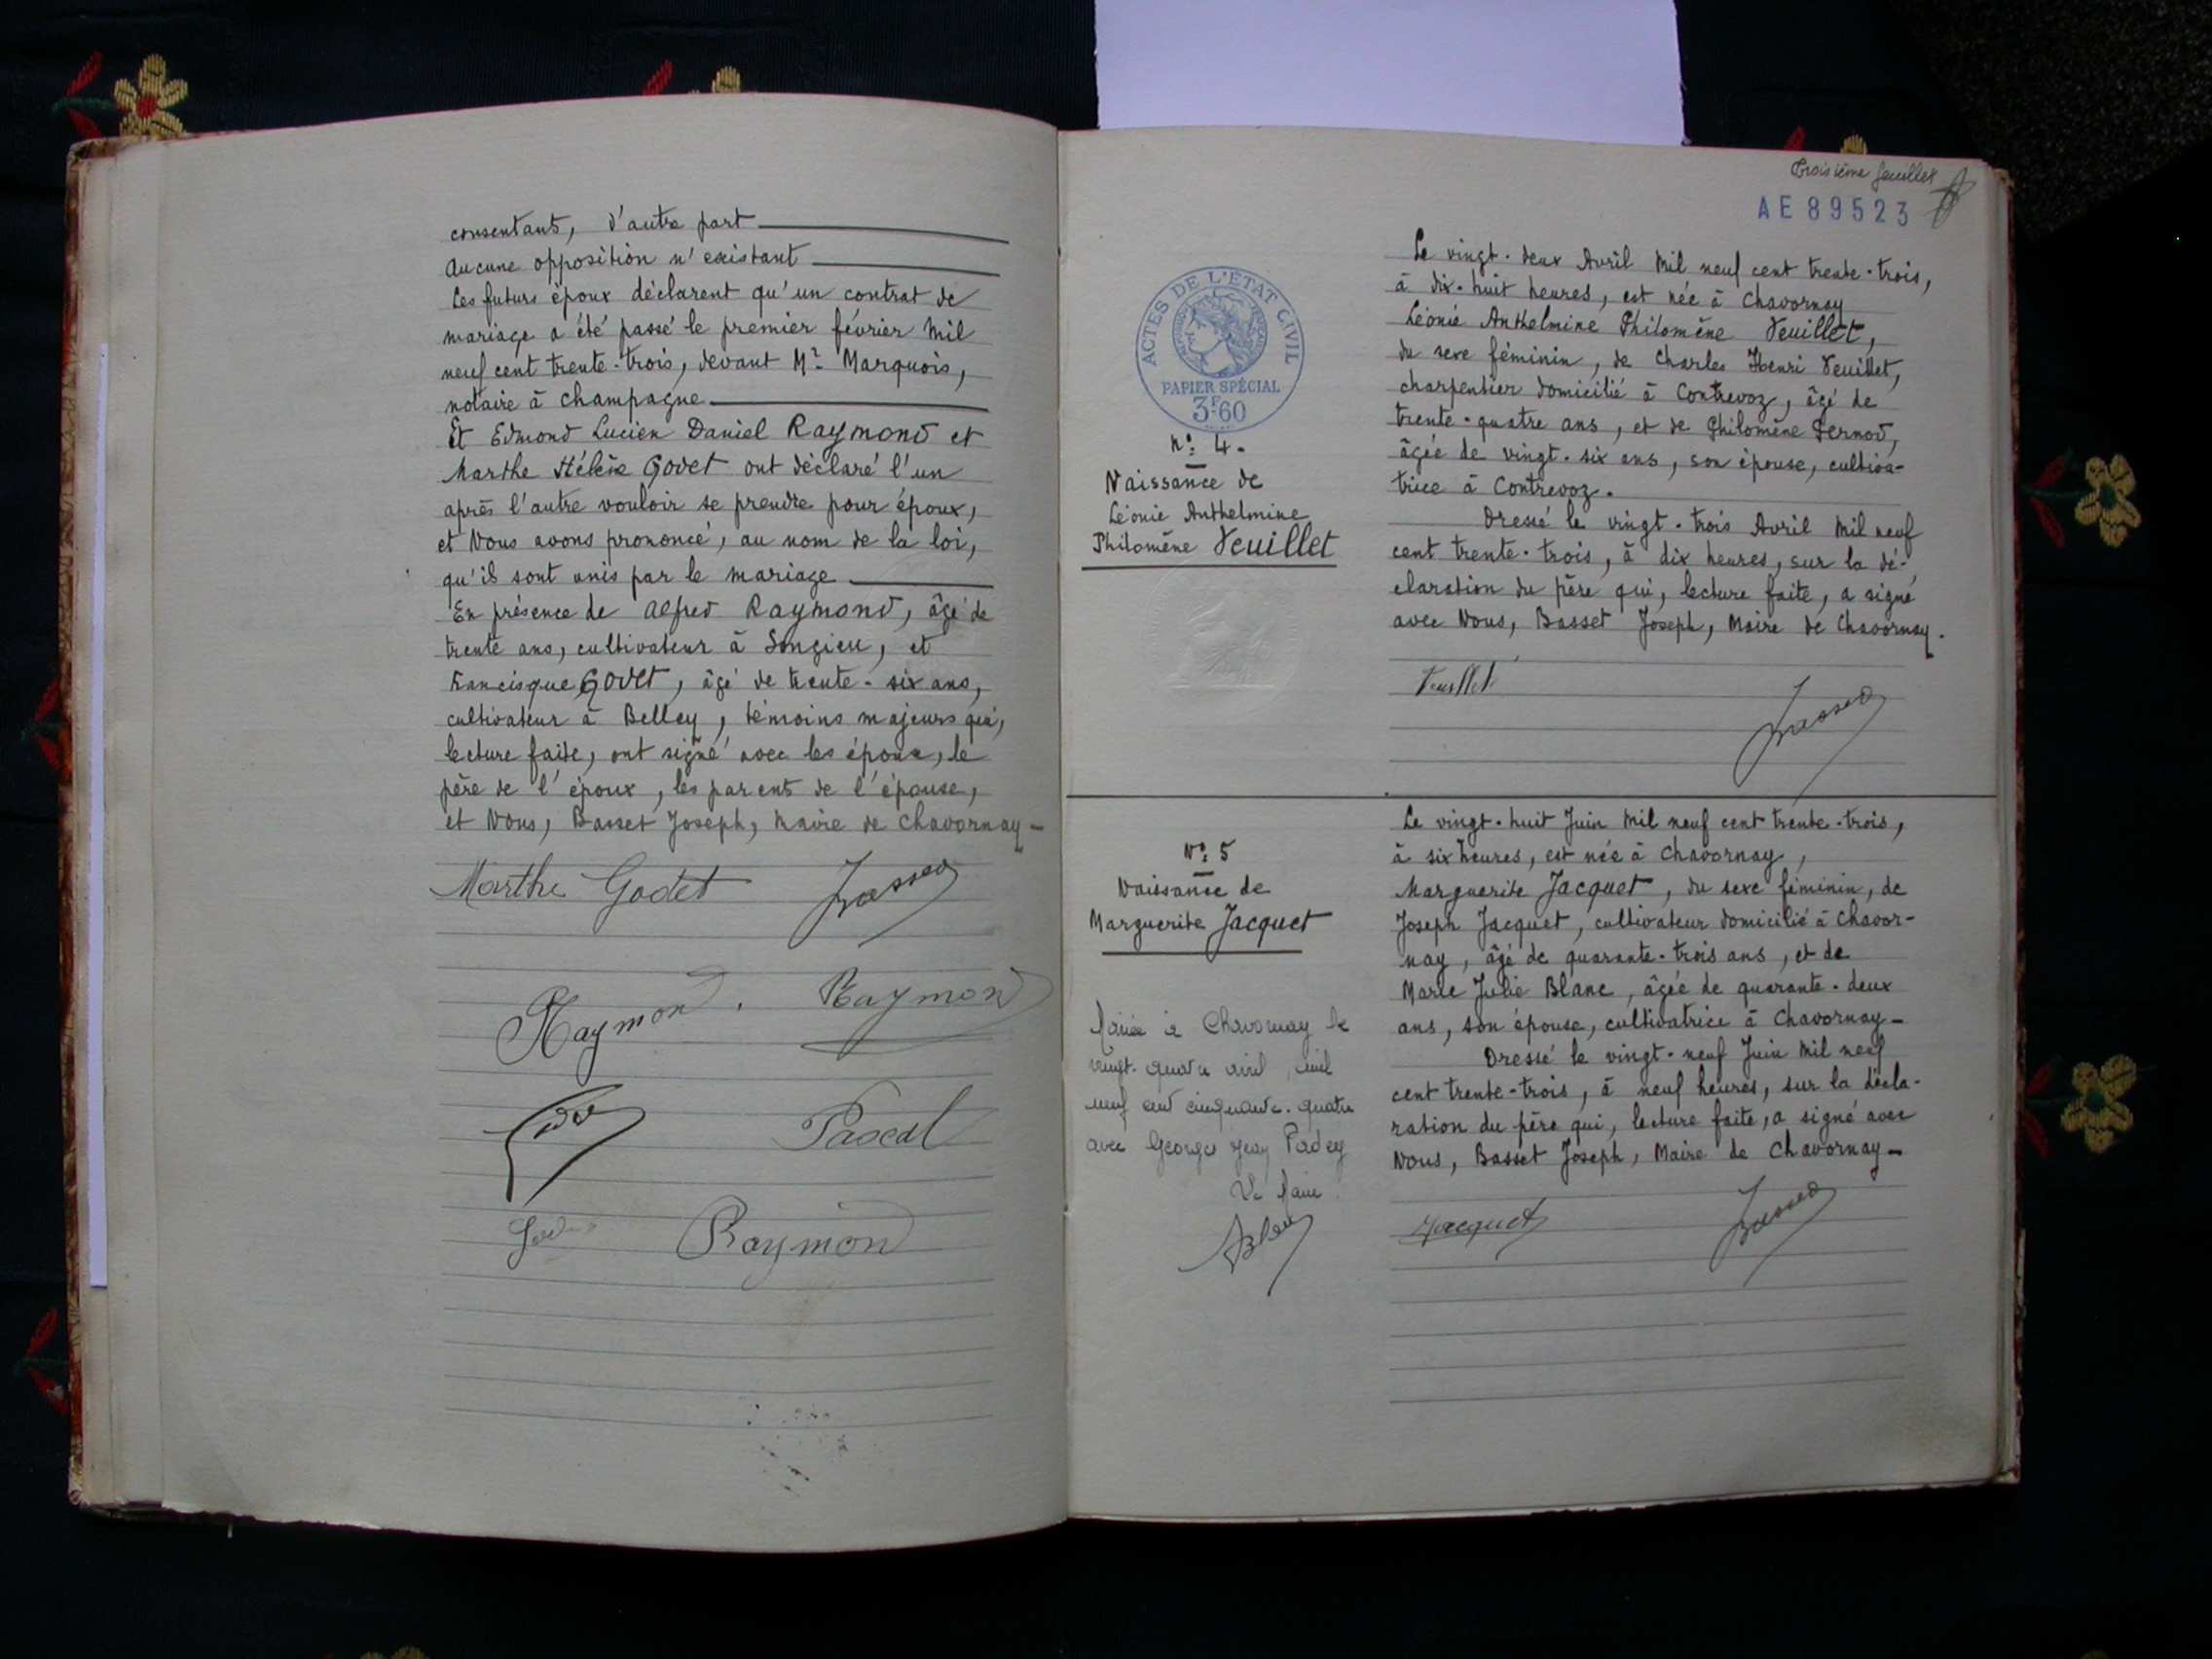 consentants, d'autre part
Aucune opposition n'existant
Les futurs époux déclarent qu'un contrat de
mariage a été passé le premier février mil
neuf cent trente-trois, devant Me Marquois,
notaire à Champagne
Et Edmond Lucien Daniel Raymond et
Marthe Hélène Godet ont déclaré l'un
après l'autre vouloir se prendre pour époux,
et Nous avons prononcé, au nom de la loi,
qu'ils sont unis par le mariage
En présence de Alfred Raymond, âgé de
trente ans, cultivateur à Songieu, et
Francisque Godet, âgé de trente-six ans,
cultivateur à Belley, témoins majeurs qui,
lecture faite, ont signé avec les époux, le
père de l'époux, les parents de l'épouse,
et Nous, Basset Joseph, Maire de Chavornay-
Marthe Godet Basset
Raymond. Raymond
Pascal
Raymond
Troisième feuillet
AE 89523
ACTES DE L'ÉTAT CIVIL
PAPIER SPÉCIAL
3F.60
No: 4.
Naissance de
Léonie Anthelmine
Philomène Veuillet
Le vingt-deux Avril mil neuf cent trente-trois,
à dix-huit heures, est née à Chavornay
Léonie Anthelmine Philomène Veuillet,
du sexe féminin, de Charles Henri Veuillet,
charpentier domicilié à Contrevoz, âgé de
trente-quatre ans, et de Philomène Pernod,
âgée de vingt-six ans, son épouse, cultiva-
trice à Contrevoz.
Dressé le vingt-trois Avril mil neuf
cent trente-trois, à dix heures, sur la dé-
claration du père qui, lecture faite, a signé
avec Nous, Basset Joseph, Maire de Chavornay.
Veuillet Basset
No: 5
Naissance de
Marguerite Jacquet
Mariée à Chavornay le
vingt-quatre avril mil
neuf cent cinquante-quatre
avec Georges Jean Padey
Le Maire
Le vingt-huit Juin mil neuf cent trente-trois,
à six heures, est née à Chavornay,
Marguerite Jacquet, du sexe féminin, de
Joseph Jacquet, cultivateur domicilié à Chavor-
nay, âgé de quarante-trois ans, et de
Marie Julie Blanc, âgée de quarante-deux
ans, son épouse, cultivatrice à Chavornay-
Dressé le vingt-neuf Juin mil neuf
cent trente-trois, à neuf heures, sur la décla-
ration du père qui, lecture faite, a signé avec
Nous, Basset Joseph, Maire de Chavornay-
Jacquet Basset